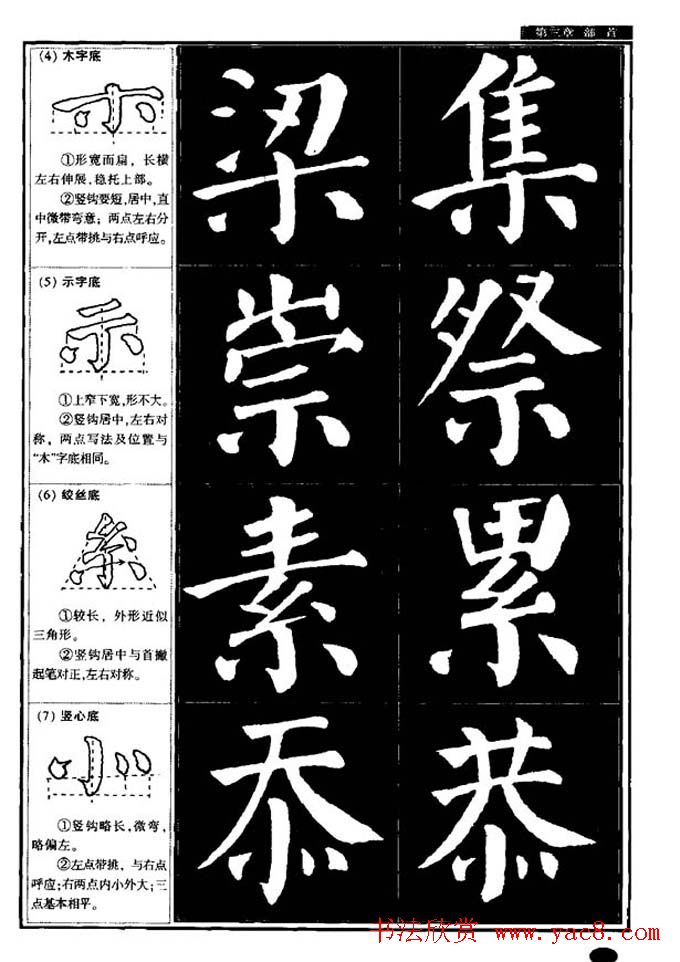 第三章 部 首
(4) 木字底
①形宽而扁，长横
左右伸展,稳托上部。
②竖钩要短,居中,直
中微带弯意；两点左右分
开,左点带挑与右点呼应。
梁 集
(5) 示字底
①上窄下宽,形不大。
②竖钩居中,左右对
称，两点写法及位置与
“木”字底相同。
崇 祭
(6) 绞丝底
①较长，外形近似
三角形。
②竖钩居中与首撇
起笔对正,左右对称。
素 累
(7) 竖心底
①竖钩略长,微弯,
略偏左。
②左点带挑，与右点
呼应;右两点内小外大;三
点基本相平。
忝 恭
书法欣赏 www.yac8.com